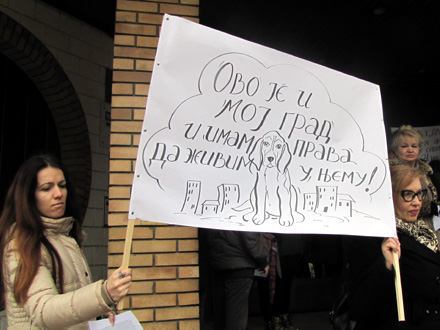 ОВО ЈЕ И
МОЈ ГРАД
И ИМАМ ПРАВА
ДА ЖИВИМ У ЊЕМУ!